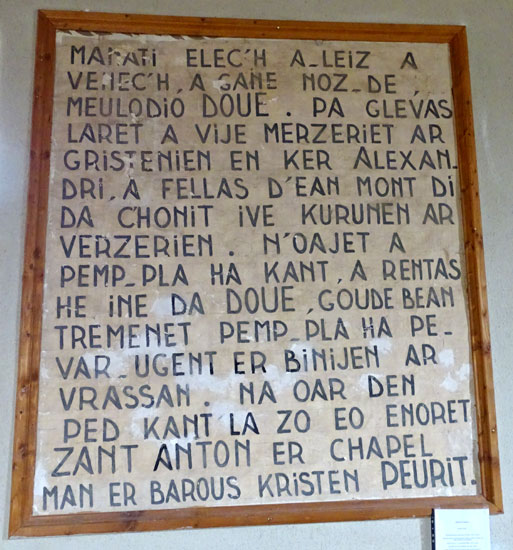 MANATI ELEC'H A-LEIZ A
VENEC'H, A GANE NOZ-DE,
MEULODIO DOUE. PA GLEVAS
LARET A VIJE MERZERIET AR
GRISTENIEN EN KER ALEXAN-
DRI, A FELLAS D'EAN MONT DI
DA C'HONIT IVE KURUNEN AR
VERZERIEN. N'OAJET A
PEMP-PLA HA KANT, A RENTAS
HE INE DA DOUE, GOUDE BEAN
TREMENET PEMP-PLA HA PE-
VAR-UGENT ER BINIJEN AR
VRASSAN. NA OAR DEN
PED KANT LA ZO EO ENORET
ZANT ANTON ER CHAPEL
MAN ER BAROUS KRISTEN PEURIT.